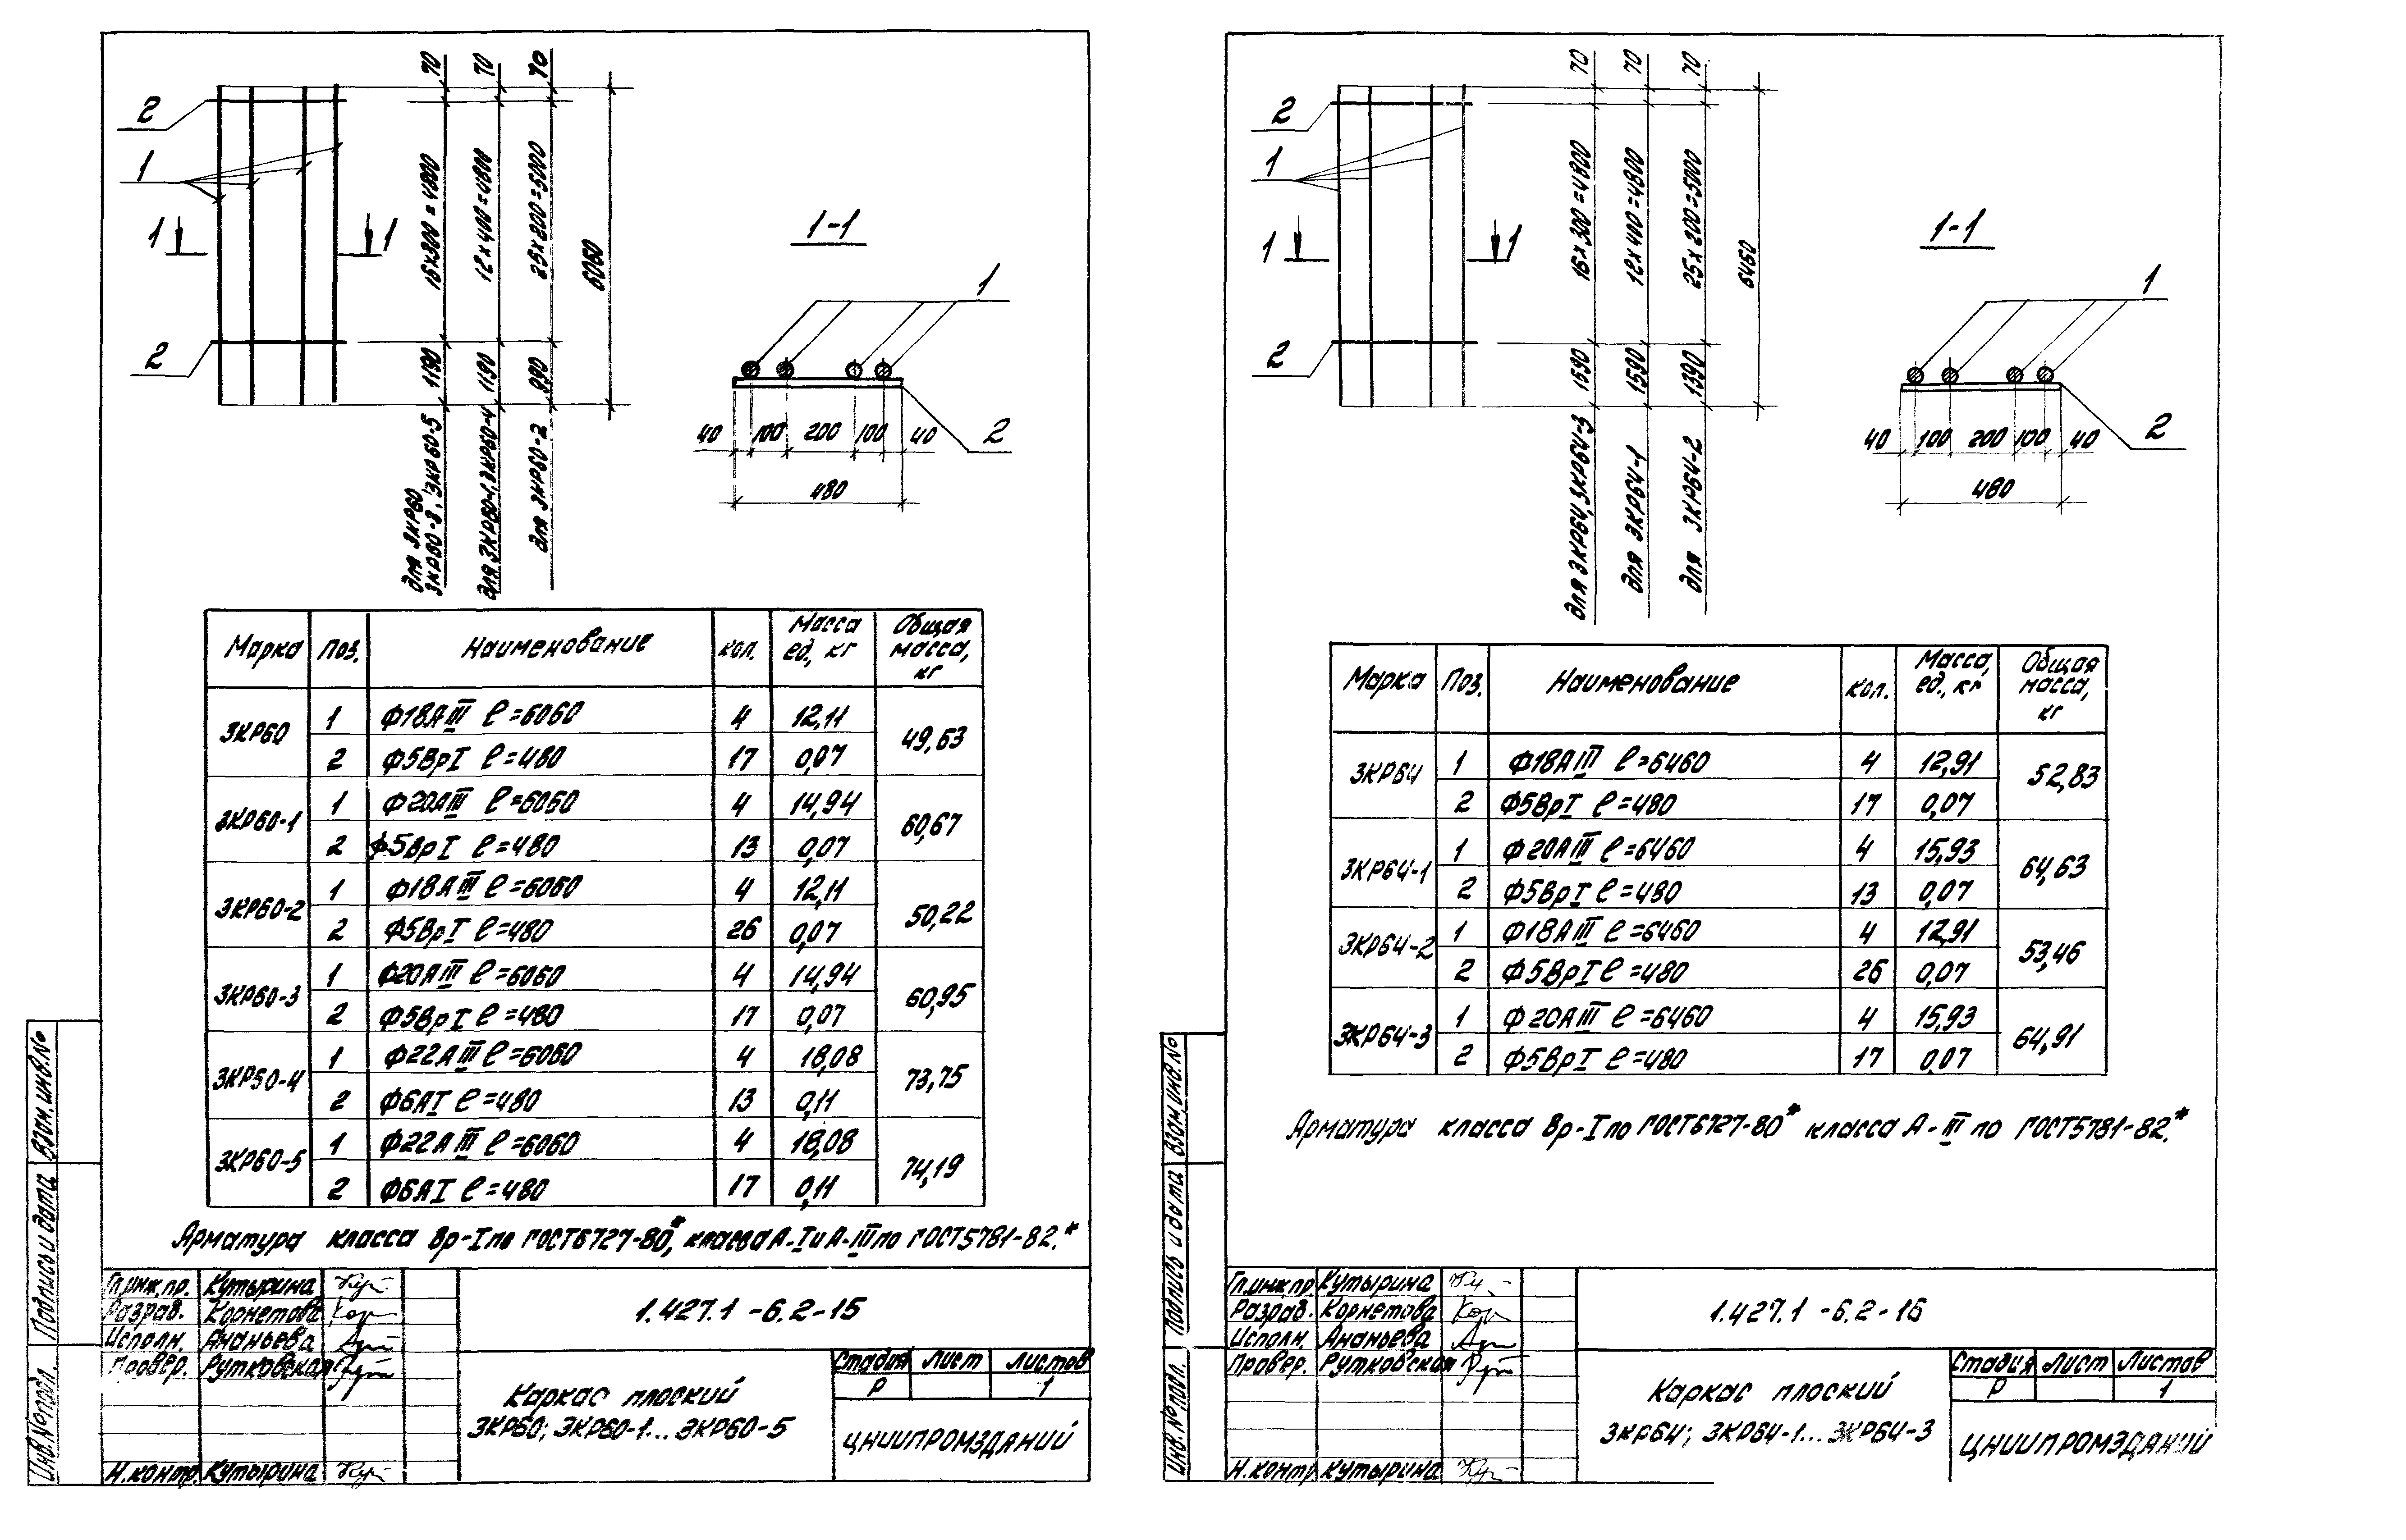 70
70
70
2
1
16×300=4800
12×400=4800
25×200=5000
6060
1
1
1-1
1
2
1190
1190
990
2
40 100 200 100 40
480
для 3КР60
3КР60-3, 3КР60-5
для 3КР60-1, 3КР60-4
для 3КР60-2
Марка Поз. Наименование кол. Масса ед., кг Общая масса, кг
3КР60 1 Ф18АIII ℓ=6060 4 12,11 49,63
2 Ф5ВрI ℓ=480 17 0,07
3КР60-1 1 Ф20АIII ℓ=6060 4 14,94 60,67
2 Ф5ВрI ℓ=480 13 0,07
3КР60-2 1 Ф18АIII ℓ=6060 4 12,11 50,22
2 Ф5ВрI ℓ=480 26 0,07
3КР60-3 1 Ф20АIII ℓ=6060 4 14,94 60,95
2 Ф5ВрI ℓ=480 17 0,07
3КР60-4 1 Ф22АIII ℓ=6060 4 18,08 73,75
2 Ф6АI ℓ=480 13 0,11
3КР60-5 1 Ф22АIII ℓ=6060 4 18,08 74,19
2 Ф6АI ℓ=480 17 0,11
Арматура класса Вр-I по ГОСТ6727-80*, класса А-I и А-III по ГОСТ5781-82.*
Гл.инж.пр. Кутырина
Разраб. Корнетова
Исполн. Ананьева
Провер. Рутковская
Н.контр. Кутырина
1.427.1-6.2-15
Каркас плоский
3КР60; 3КР60-1...3КР60-5
Стадия Лист Листов
Р 1
ЦНИИПРОМЗДАНИЙ
Взам.инв.№
Подпись и дата
Инв.№подл.
70
70
70
2
1
16×300=4800
12×400=4800
25×200=5000
6460
1
1
1-1
1
2
1590
1590
1390
2
40 100 200 100 40
480
для 3КР64, 3КР64-3
для 3КР64-1
для 3КР64-2
Марка Поз. Наименование кол. Масса, ед., кг Общая масса, кг
3КР64 1 Ф18АIII ℓ=6460 4 12,91 52,83
2 Ф5ВрI ℓ=480 17 0,07
3КР64-1 1 Ф20АIII ℓ=6460 4 15,93 64,63
2 Ф5ВрI ℓ=480 13 0,07
3КР64-2 1 Ф18АIII ℓ=6460 4 12,91 53,46
2 Ф5ВрI ℓ=480 26 0,07
3КР64-3 1 Ф20АIII ℓ=6460 4 15,93 64,91
2 Ф5ВрI ℓ=480 17 0,07
Арматура класса Вр-I по ГОСТ6727-80* класса А-III по ГОСТ5781-82.*
Гл.инж.пр. Кутырина
Разраб. Корнетова
Исполн. Ананьева
Провер. Рутковская
Н.контр. Кутырина
1.427.1-6.2-16
Каркас плоский
3КР64; 3КР64-1...3КР64-3
Стадия Лист Листов
Р 1
ЦНИИПРОМЗДАНИЙ
Взам.инв.№
Подпись и дата
Инв.№подл.